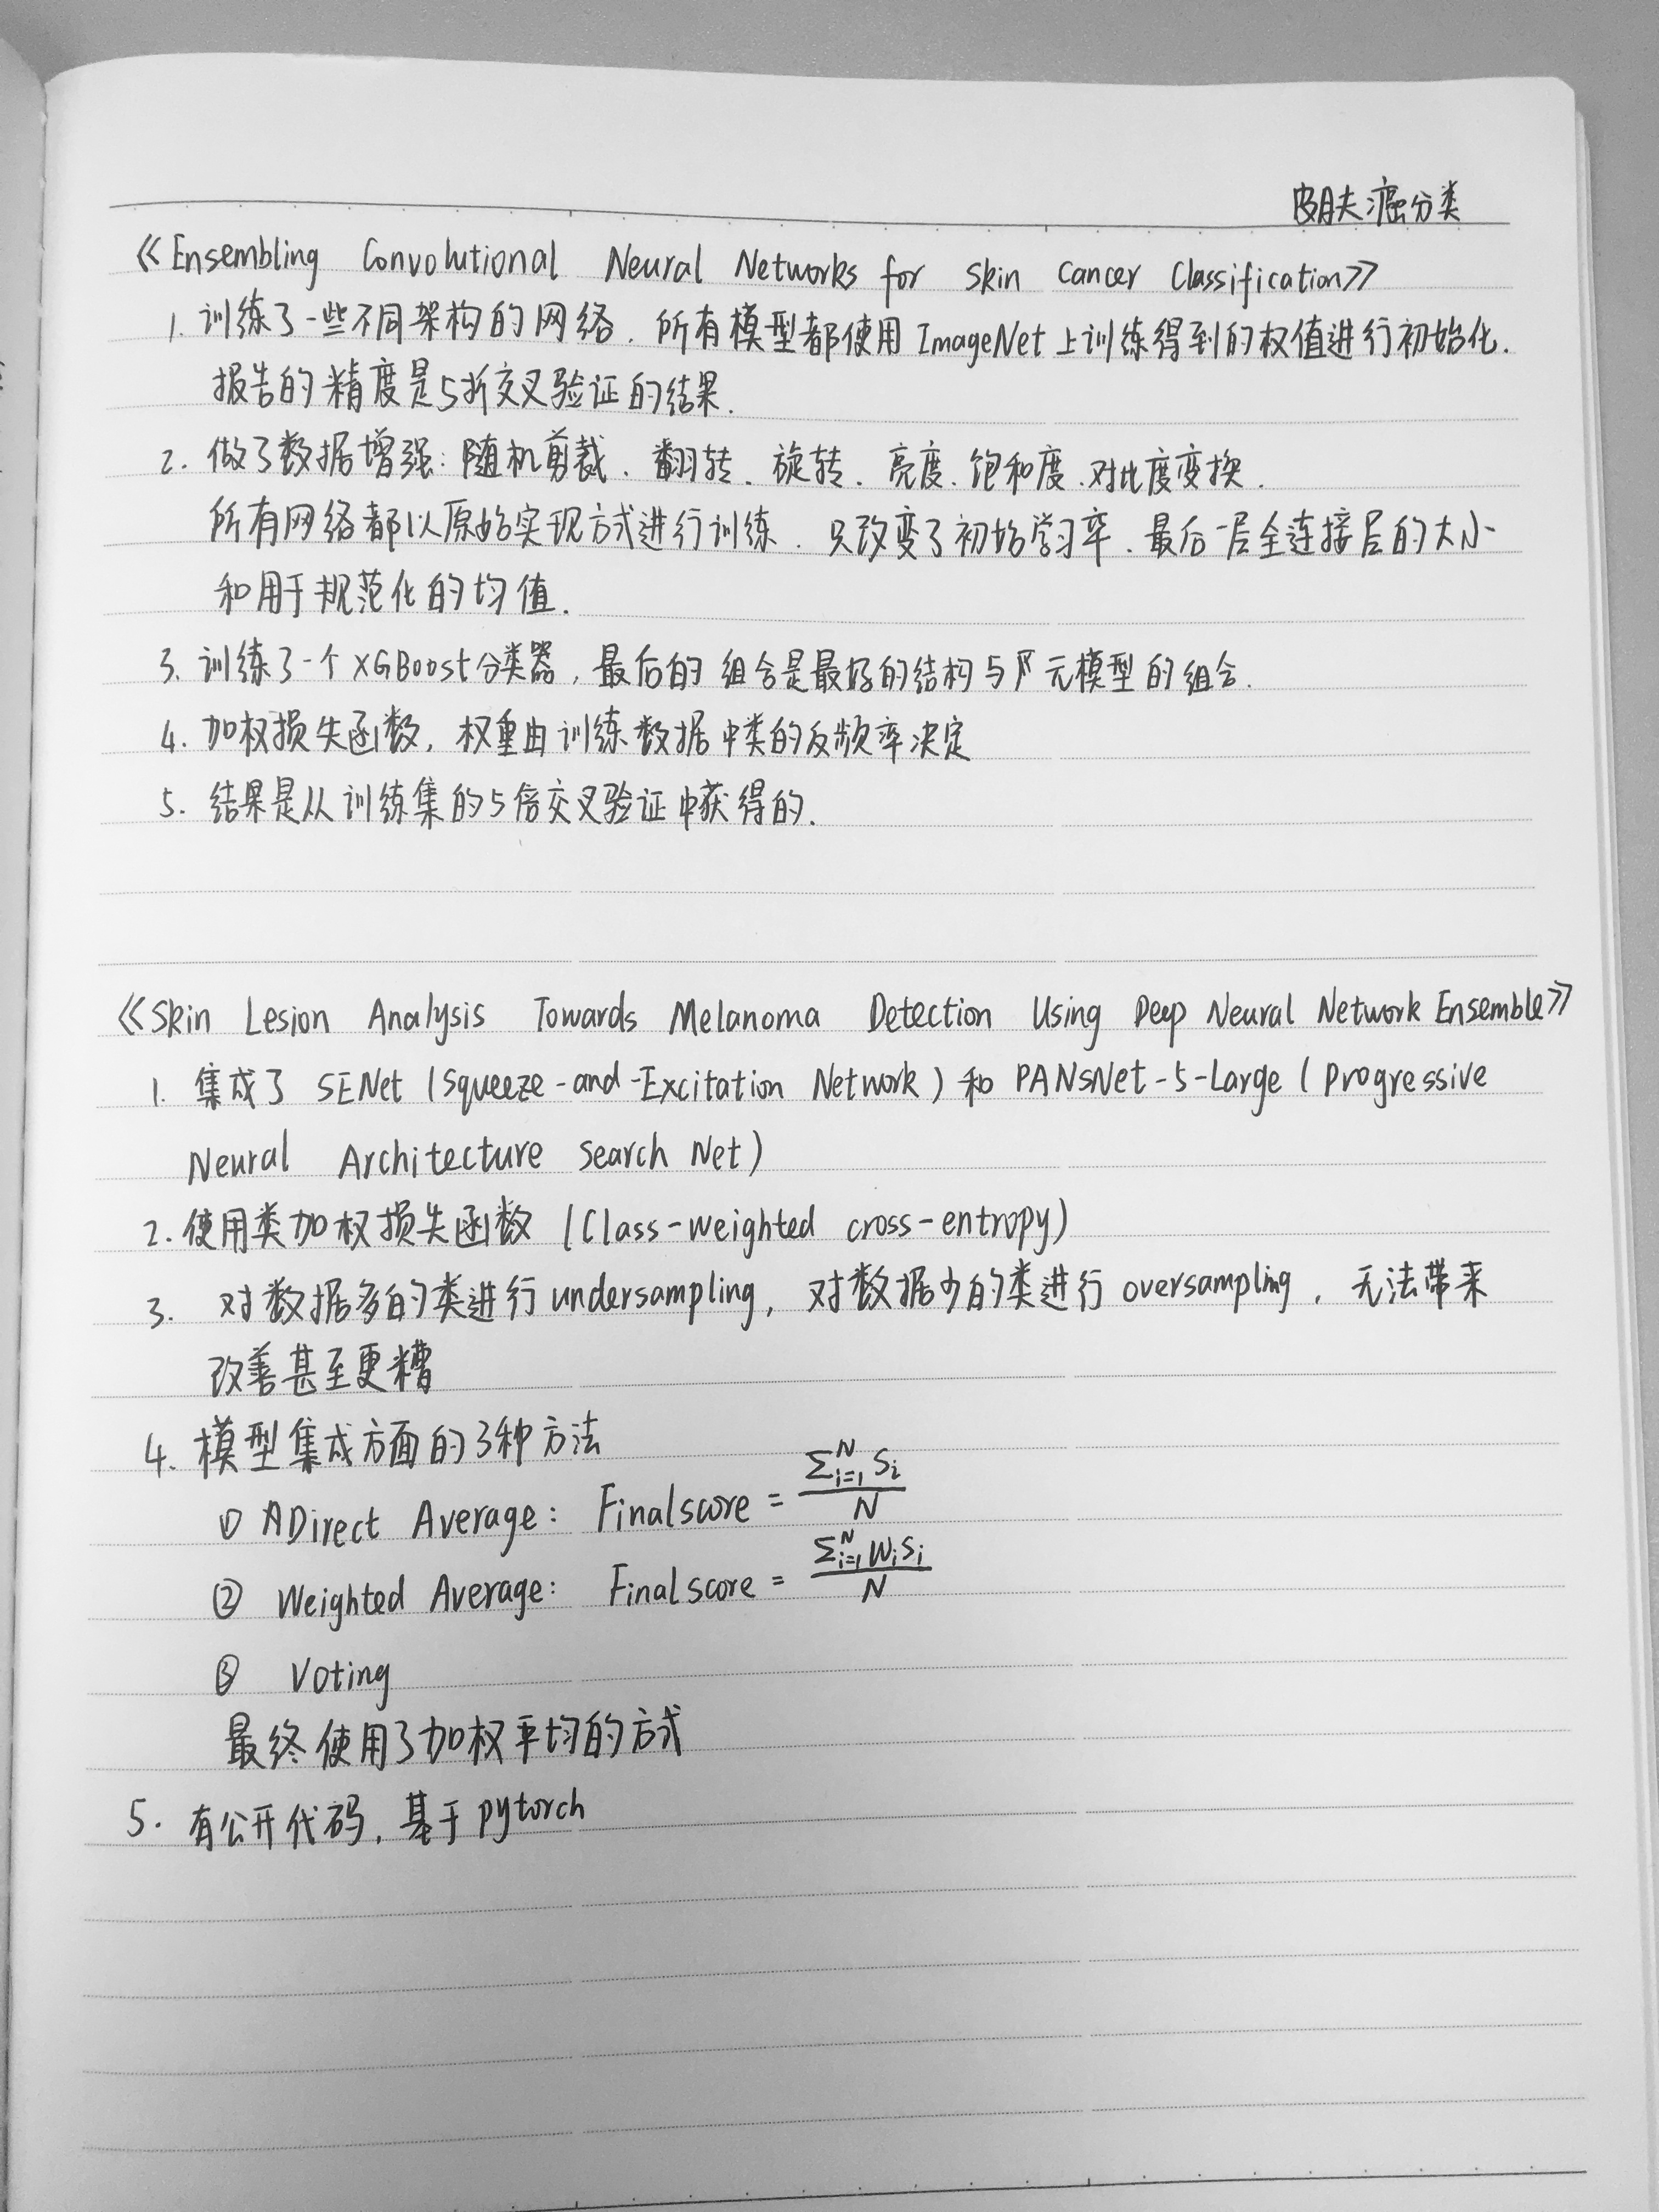 皮肤癌分类
《Ensembling Convolutional Neural Networks for Skin Cancer Classification》
1. 训练了一些不同架构的网络. 所有模型都使用 ImageNet 上训练得到的权值进行初始化.
报告的精度是5折交叉验证的结果.
2. 做了数据增强: 随机剪裁、翻转、旋转、亮度、饱和度、对比度变换.
所有网络都以原始实现方式进行训练. 只改变了初始学习率、最后一层全连接层的大小
和用于规范化的均值.
3. 训练了一个 XGBoost 分类器, 最后的 组合是最好的结构与 元模型的组合.
4. 加权损失函数, 权重由训练数据中类的反频率决定
5. 结果是从训练集的5倍交叉验证中获得的.
《Skin Lesion Analysis Towards Melanoma Detection Using Deep Neural Network Ensemble》
1. 集成了 SENet (Squeeze-and-Excitation Network) 和 PANsNet-5-Large (Progressive
Neural Architecture Search Net)
2. 使用类加权损失函数 (Class-weighted cross-entropy)
3. 对数据多的类进行 undersampling, 对数据少的类进行 oversampling, 无法带来
改善甚至更糟
4. 模型集成方面的3种方法
① ADirect Average: Finalscore = \frac{\sum_{i=1}^{N} S_i}{N}
② Weighted Average: Finalscore = \frac{\sum_{i=1}^{N} W_i S_i}{N}
③ Voting
最终使用了加权平均的方式
5. 有公开代码, 基于 pytorch